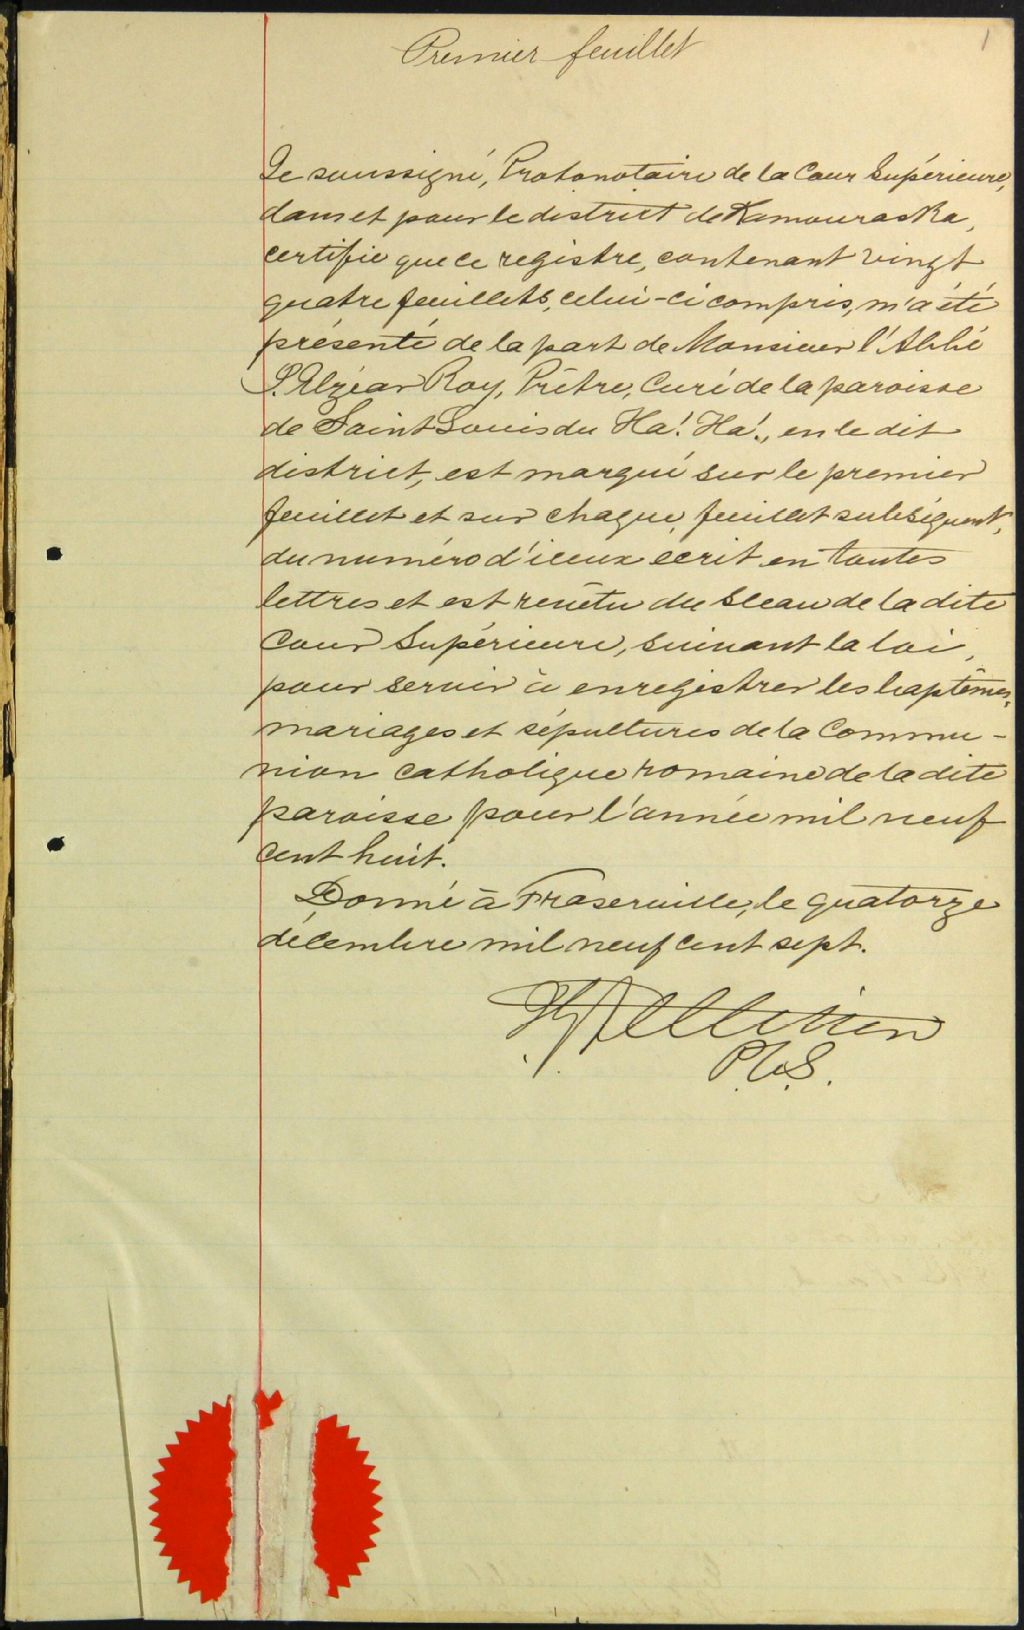 1
Premier feuillet
Je soussigné, Protonotaire de la Cour Supérieure,
dans et pour le district de Kamouraska,
certifie que ce registre, contenant vingt
quatre feuillets, celui-ci compris, m'a été
présenté de la part de Monsieur l'Abbé
S. Elzéar Roy, Prêtre, Curé de la paroisse
de Saint Louis du Ha! Ha!, en le dit
district, est marqué sur le premier
feuillet et sur chaque, feuillet subséquent,
du numéro d'iceux ecrit en toutes
lettres et est revêtu du sceau de la dite
Cour Supérieure, suivant la loi,
pour servir à enregistrer les baptêmes,
mariages et sépultures de la Commu-
nion catholique romaine de la dite
paroisse pour l'année mil neuf
cent huit.
Donné à Fraserville, le quatorze
décembre mil neuf cent sept.
Pelletier
P.C.S.